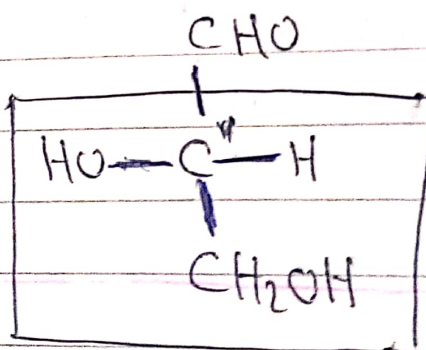 CHO
HO-C*-H
CH₂OH